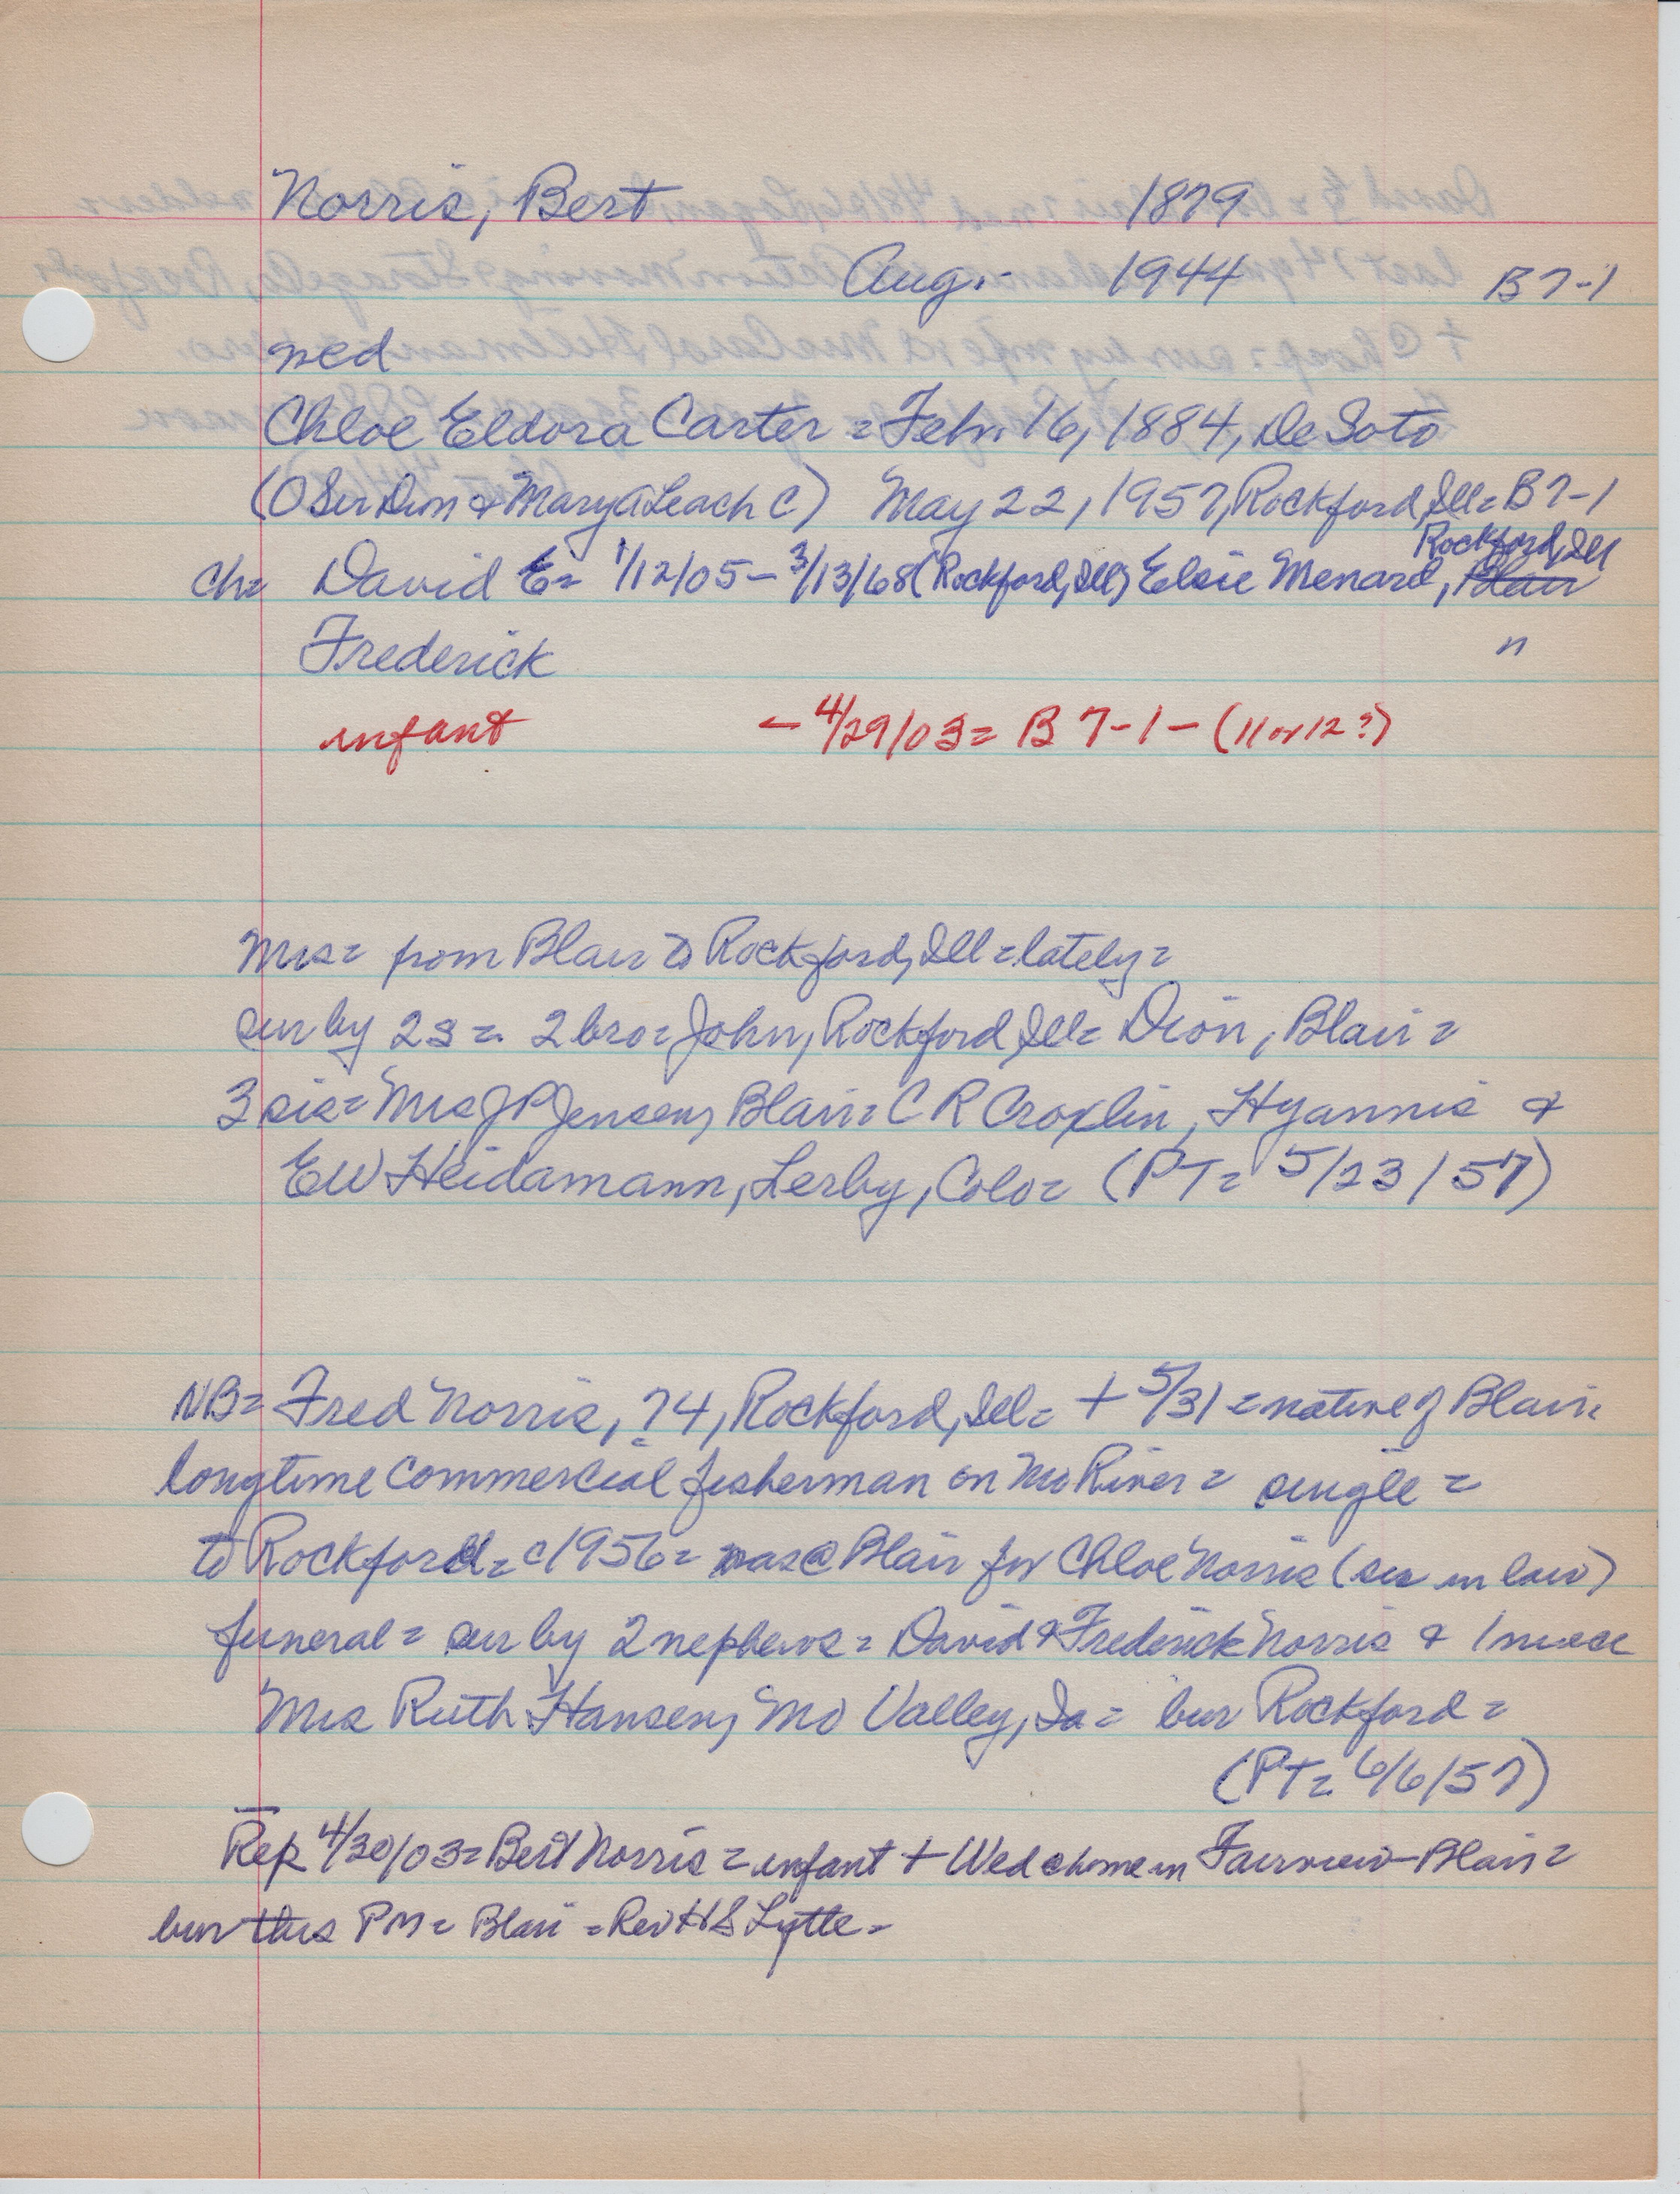 Norris, Bert 1879
Aug. 1944 B7-1
med
Chloe Eldora Carter = Feb. 16, 1884, De Soto
(O Ser Dion & Mary A Leach C) May 22, 1957, Rockford, Ill = B7-1
Rockford, Ill
ch= David E = 1/12/05 - 3/13/68 (Rockford, Ill) Elsie Menard, Blair
Frederick "
infant - 4/29/03 = B7-1 - (11 or 12?)
Mrs = from Blair to Rockford, Ill = lately =
sur by 2s = 2 bro = John, Rockford, Ill = Dion, Blair =
3 sis = Mrs J P Jensen, Blair = C R Croxlin, Hyannis &
E W Heidamann, Lerby, Colo = (PT = 5/23/57)
NB = Fred Norris, 74, Rockford, Ill = + 5/31 = native of Blair =
longtime commercial fisherman on Mo River = single =
to Rockford = c1956 = was @ Blair for Chloe Norris (sis in law)
funeral = sur by 2 nephews = David & Frederick Norris & 1 niece
Mrs Ruth Hansen, Mo Valley, Ia = bur Rockford =
(PT = 6/6/57)
Rep 4/30/03 = Bert Norris = infant + Wed @ home in Fairview - Blair =
bur this PM = Blair = Rev H S Lytte =